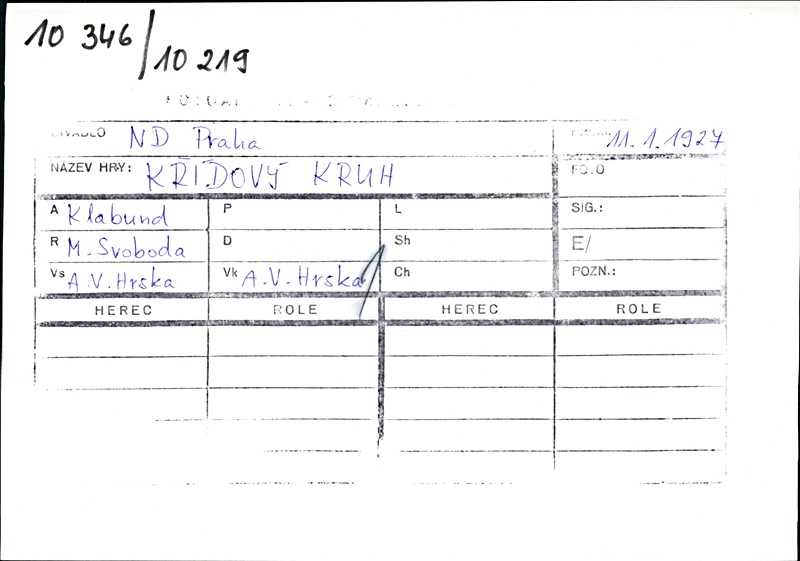 10 346/10 219
DIVADLO ND Praha 11.1.1927
NÁZEV HRY: KŘÍDOVÝ KRUH FOTO
A Klabund P L SIG.:
R M. Svoboda D Sh E/
Vs A.V. Hrska Vk A.V. Hrska Ch POZN.:
HEREC ROLE HEREC ROLE